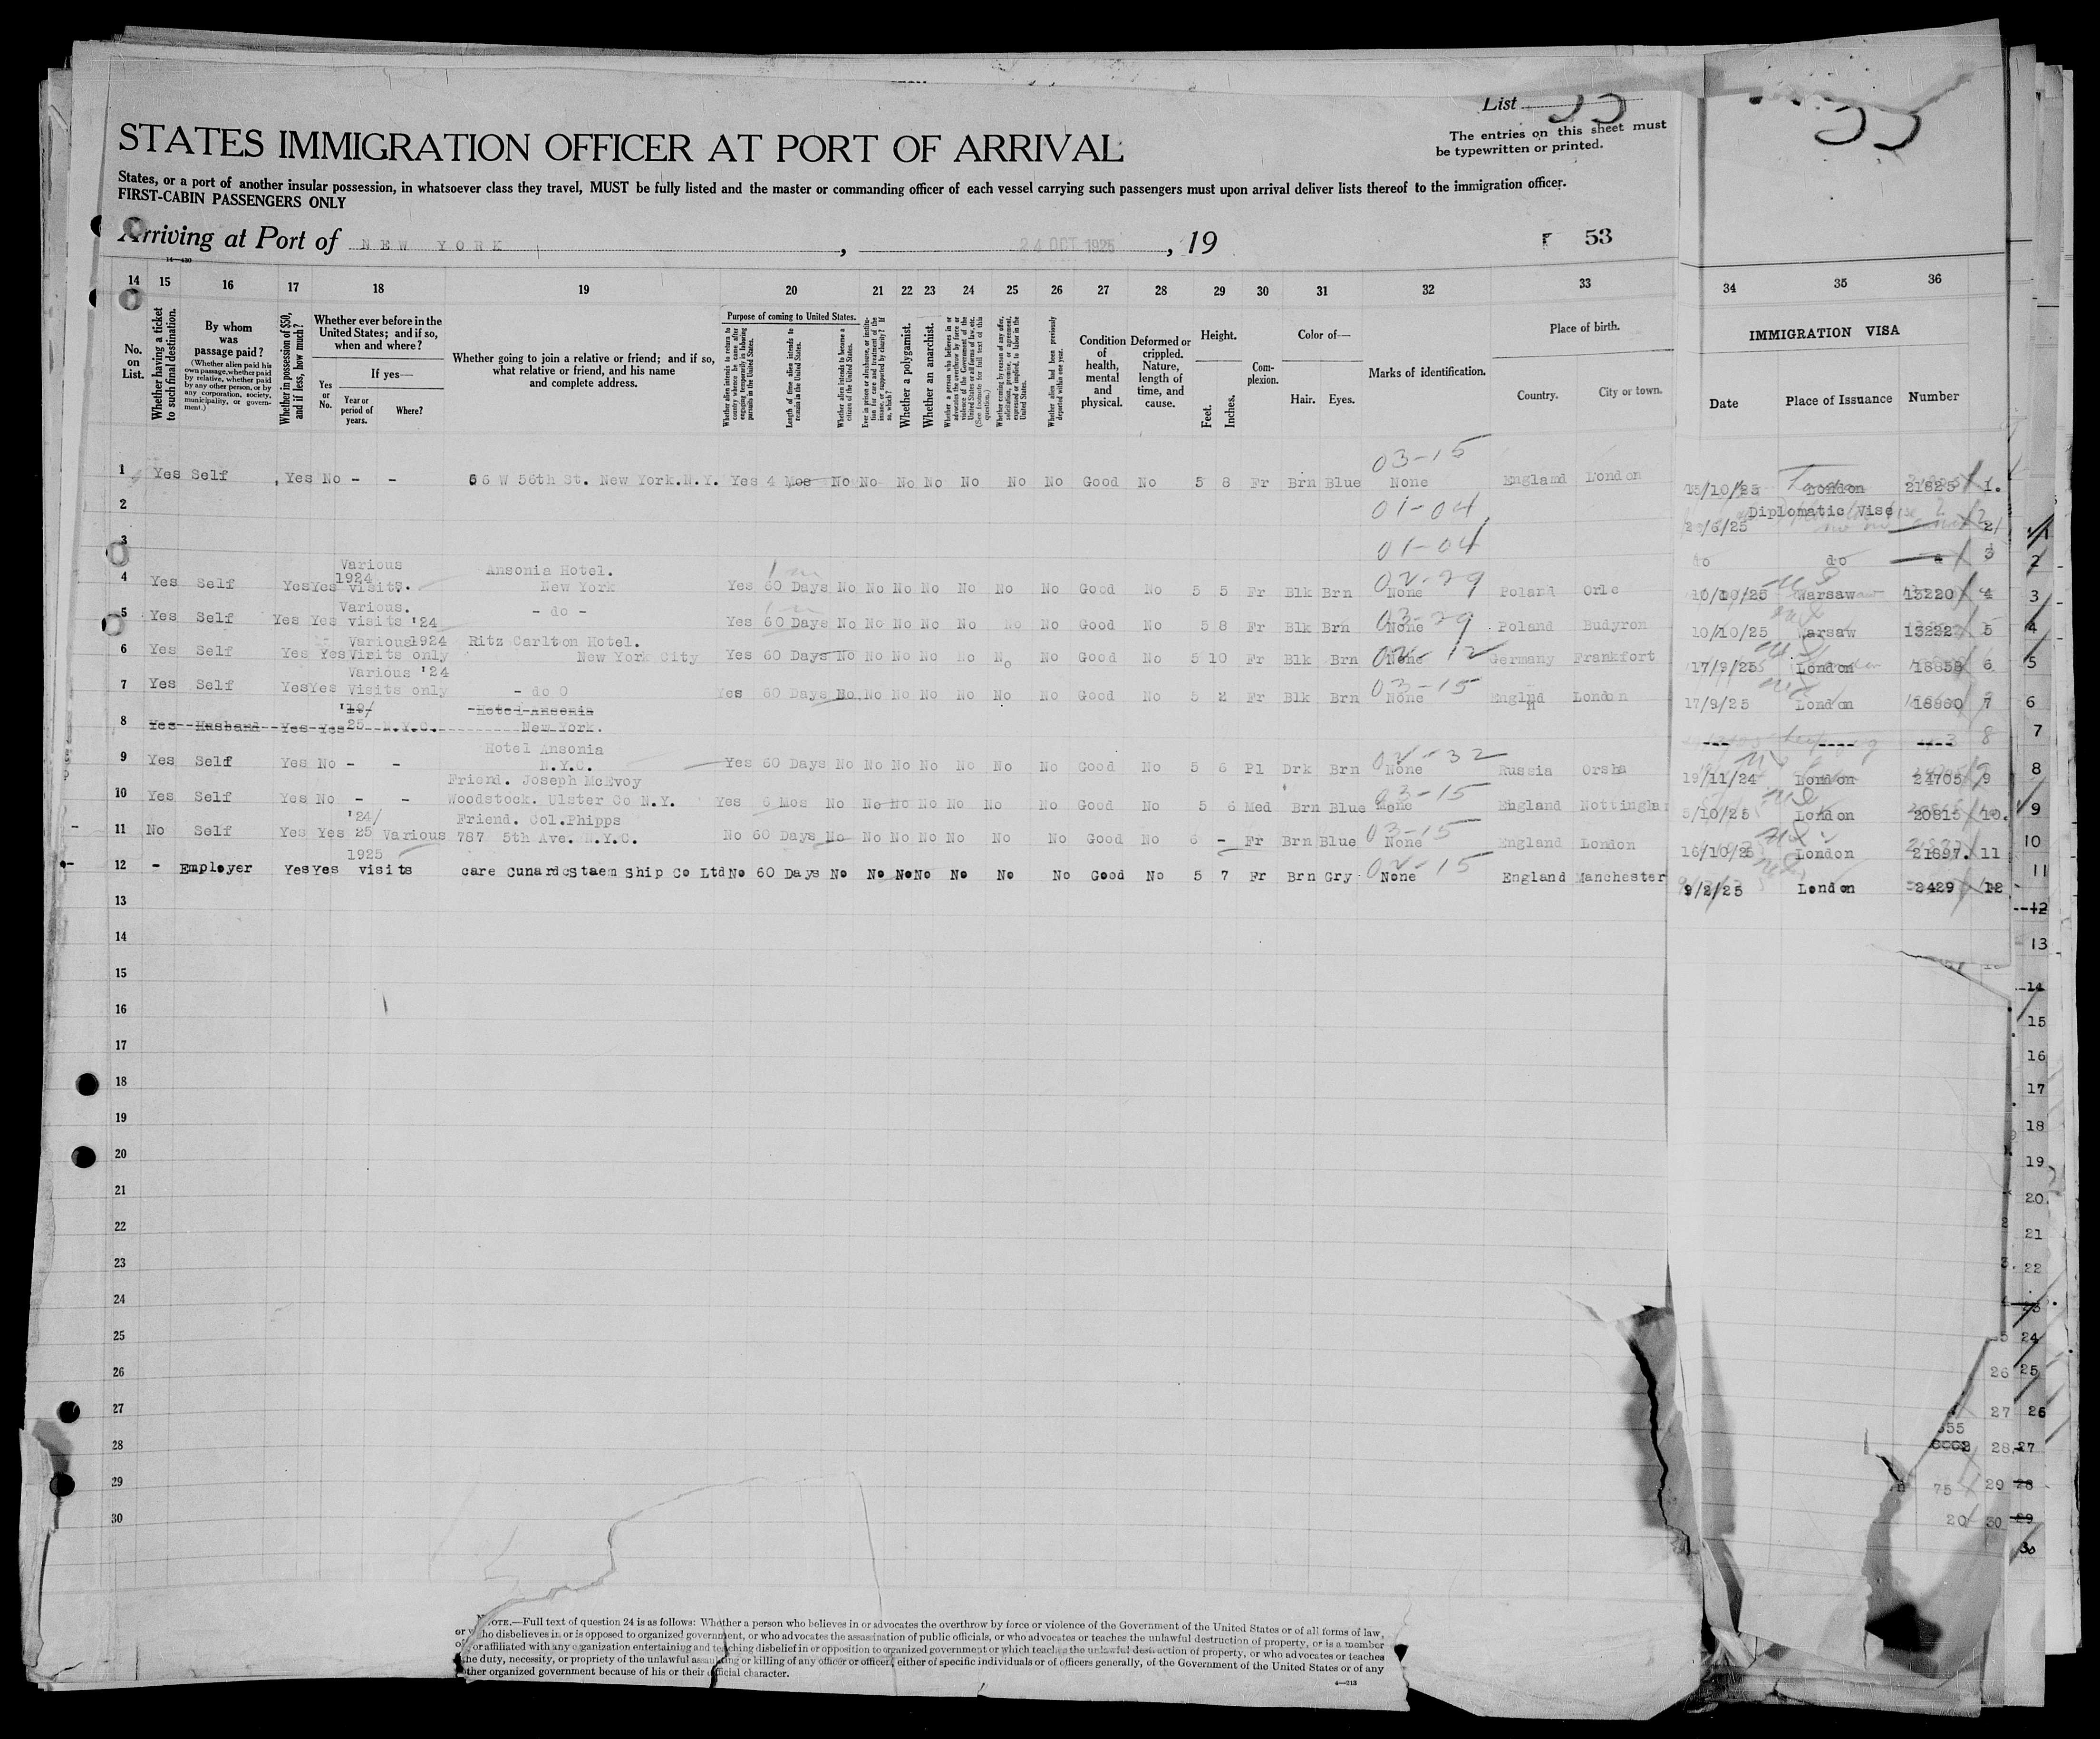 List 53
The entries on this sheet must
be typewritten or printed.
STATES IMMIGRATION OFFICER AT PORT OF ARRIVAL
States, or a port of another insular possession, in whatsoever class they travel, MUST be fully listed and the master or commanding officer of each vessel carrying such passengers must upon arrival deliver lists thereof to the immigration officer.
FIRST-CABIN PASSENGERS ONLY
Arriving at Port of NEW YORK, 24 OCT 1925, 19
53
14 15 16 17 18 19 20 21 22 23 24 25 26 27 28 29 30 31 32 33 34 35 36
No. on List.
Whether having a ticket to such final destination.
By whom was passage paid?
(Whether alien paid his own passage, whether paid by relative, whether paid by any other person, or by any corporation, society, municipality, or government.)
Whether in possession of $50, and if less, how much?
Whether ever before in the United States; and if so, when and where?
If yes—
Yes or No.
Year or period of years.
Where?
Whether going to join a relative or friend; and if so, what relative or friend, and his name and complete address.
Purpose of coming to United States.
Whether alien intends to return to country whence he came after engaging temporarily in laboring pursuits in the United States.
Length of time alien intends to remain in the United States.
Whether alien intends to become a citizen of the United States.
Whether a polygamist.
Whether an anarchist.
Condition of health, mental and physical.
Deformed or crippled. Nature, length of time, and cause.
Height.
Feet. Inches.
Complexion.
Color of—
Hair. Eyes.
Marks of identification.
Place of birth.
Country. City or town.
IMMIGRATION VISA
Date Place of Issuance Number
03-15
1 Yes Self Yes No - - 66 W 56th St. New York.N.Y. Yes 4 Mos No No No No No No No Good No 5 8 Fr Brn Blue None England London 15/10/25 London 21825 1.
01-04
2 Diplomatic Vise 2
01-04
3 do do 3
Various
1924
4 Yes Self Yes Yes visits. Ansonia Hotel. New York Yes 60 Days No No No No No No No Good No 5 5 Fr Blk Brn 02-29 None Poland Orle 10/10/25 Warsaw 13220 4
Various.
5 Yes Self Yes Yes visits '24 - do - Yes 60 Days No No No No No No No Good No 5 8 Fr Blk Brn 03-29 None Poland Budyron 10/10/25 Warsaw 13222 5
Various 1924 Ritz Carlton Hotel.
6 Yes Self Yes Yes Visits only New York City Yes 60 Days No No No No No No No Good No 5 10 Fr Blk Brn None Germany Frankfort 17/9/25 London 18858 6
Various '24
7 Yes Self Yes Yes Visits only - do O Yes 60 Days No No No No No No No Good No 5 2 Fr Blk Brn 03-15 None England London 17/9/25 London 18860 7
Hotel Ansonia
8 Yes Husband Yes Yes 25 N.Y.C. New York. 8
Hotel Ansonia
9 Yes Self Yes No - - N.Y.C. Yes 60 Days No No No No No No No Good No 5 6 Pl Drk Brn 02-32 None Russia Orsha 19/11/24 London 24705 9
Friend. Joseph McEvoy
10 Yes Self Yes No - - Woodstock. Ulster Co N.Y. Yes 6 Mos No No No No No No No Good No 5 6 Med Brn Blue 03-15 None England Nottingha 5/10/25 London 20815 10.
'24/ Friend. Col.Phipps
11 No Self Yes Yes 25 Various 787 5th Ave. N.Y.C. No 60 Days No No No No No No No Good No 6 - Fr Brn Blue 03-15 None England London 16/10/25 London 21897. 11
1925
12 - Employer Yes Yes visits care Cunard Staem Ship Co Ltd No 60 Days No No No No No No No Good No 5 7 Fr Brn Gry 02-15 None England Manchester 9/2/25 London 2429 12
13
14
15
16
17
18
19
20
21
22
23
24
25
26
27
28
29
30
NOTE.—Full text of question 24 is as follows: Whether a person who believes in or advocates the overthrow by force or violence of the Government of the United States or of all forms of law,
or who disbelieves in or is opposed to organized government, or who advocates the assassination of public officials, or who advocates or teaches the unlawful destruction of property, or is a member
of or affiliated with any organization entertaining and teaching disbelief in or opposition to organized government or which teaches the unlawful destruction of property, or who advocates or teaches
the duty, necessity, or propriety of the unlawful assaulting or killing of any officer or officers, either of specific individuals or of officers generally, of the Government of the United States or of any
other organized government because of his or their official character.
4—213